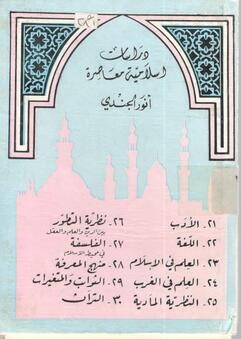 دراسات
اسلامية معاصرة
أنور الجندي
٢١ـ الأدب
٢٢ـ اللغة
٢٣ـ العلم في الاسلام
٢٤ـ العلم في الغرب
٢٥ـ النظرية المادية
٢٦ـ نظرية التطور
بين الدين والعلم والعقل
٢٧ـ الفلسفة
في محيط الاسلام
٢٨ـ منهج المعرفة
٢٩ـ الثوابت والمتغيرات
٣٠ـ التراث